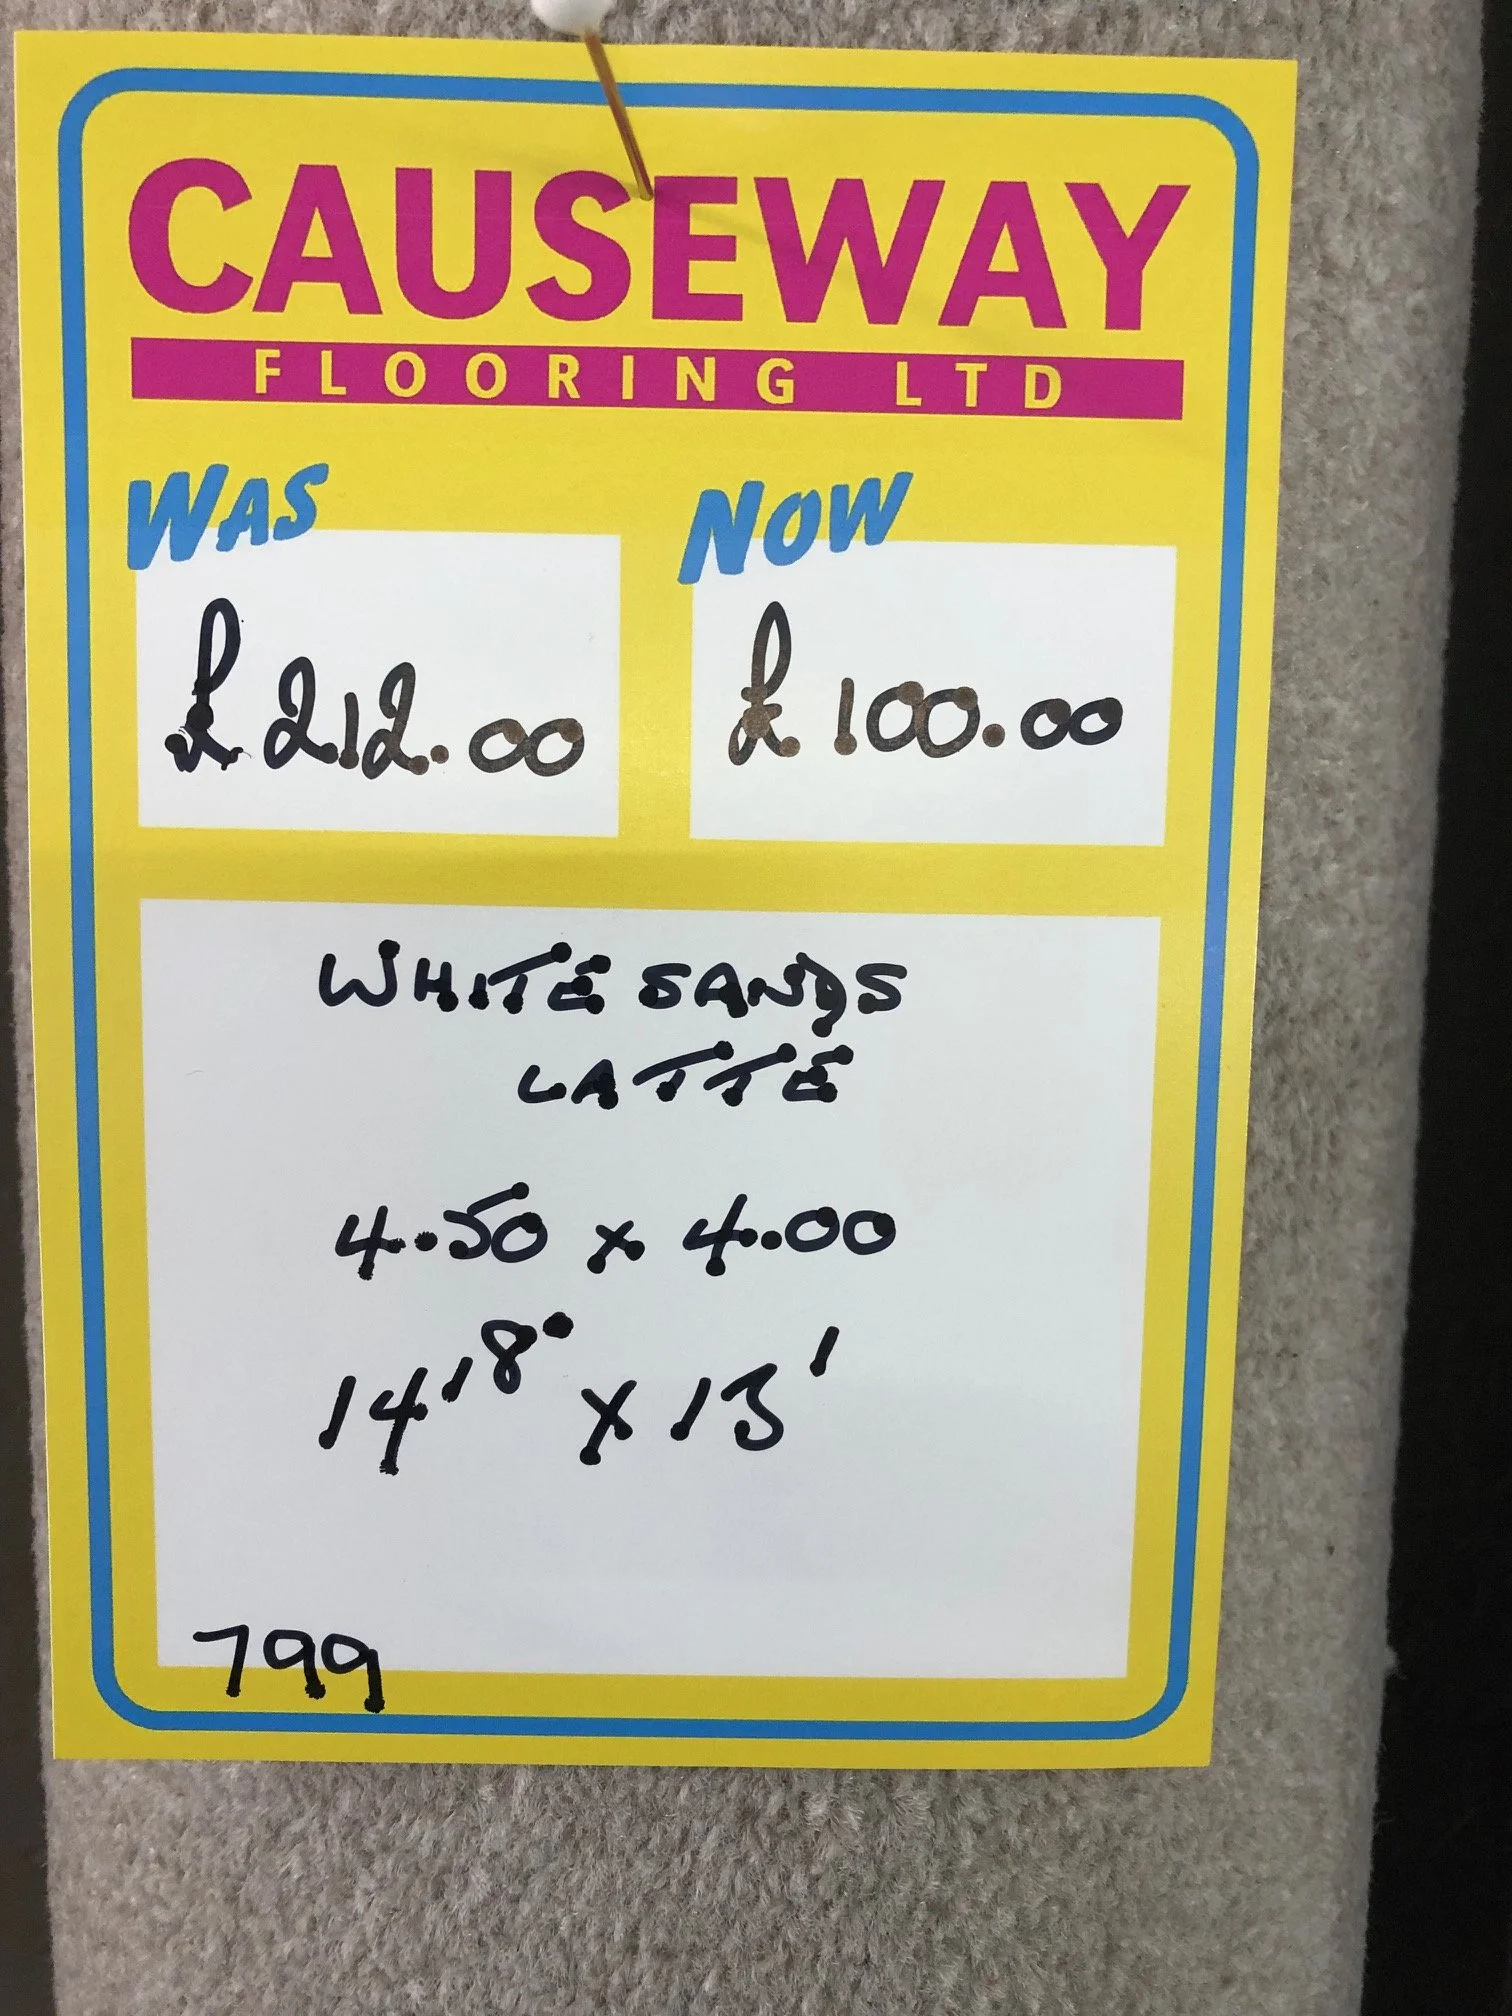 CAUSEWAY
FLOORING LTD
WAS
NOW
£212.00
£100.00
WHITE SANDS
LATTE
4.50 x 4.00
14'8" x 13'
799